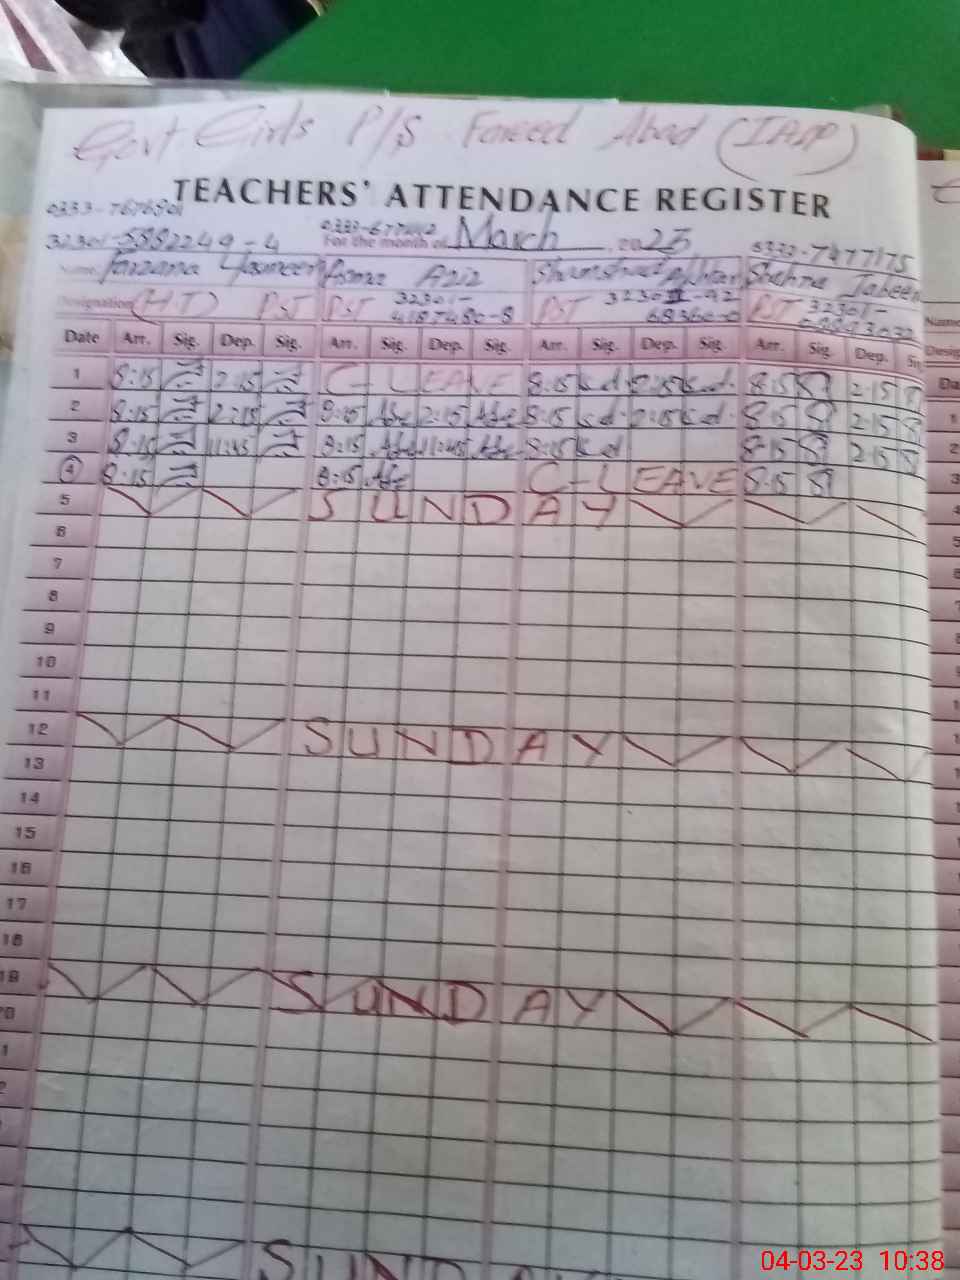 Govt Girls P/S Fareed Abad (IAOP)
TEACHERS' ATTENDANCE REGISTER
0333-7676801 0333-677
32301-5882249-4 For the month of March 2023 0332-7477175
Name Farzana Yasmeen Asma Aziz Shamshad Akhtar Shahna Jabeen
Designation (H.T) PST PST 32301-4187480-8 PST PST 32301-
Date Arr. Sig. Dep. Sig. Arr. Sig. Dep. Sig. Arr. Sig. Dep. Sig. Arr. Sig. Dep.
1 8:15 2:15 C-LEAVE 8:15 2:15 8:15 2:15
2 8:15 2:15 8:15 2:15 8:15 2:15 8:15 2:15
3 8:15 11:45 8:15 11:45 8:15 8:15 2:15
4 8:15 8:15 C-LEAVE 8:15
5 SUNDAY
6
7
8
9
10
11
12 SUNDAY
13
14
15
16
17
18
19 SUNDAY
20
SUNDAY
04-03-23 10:38